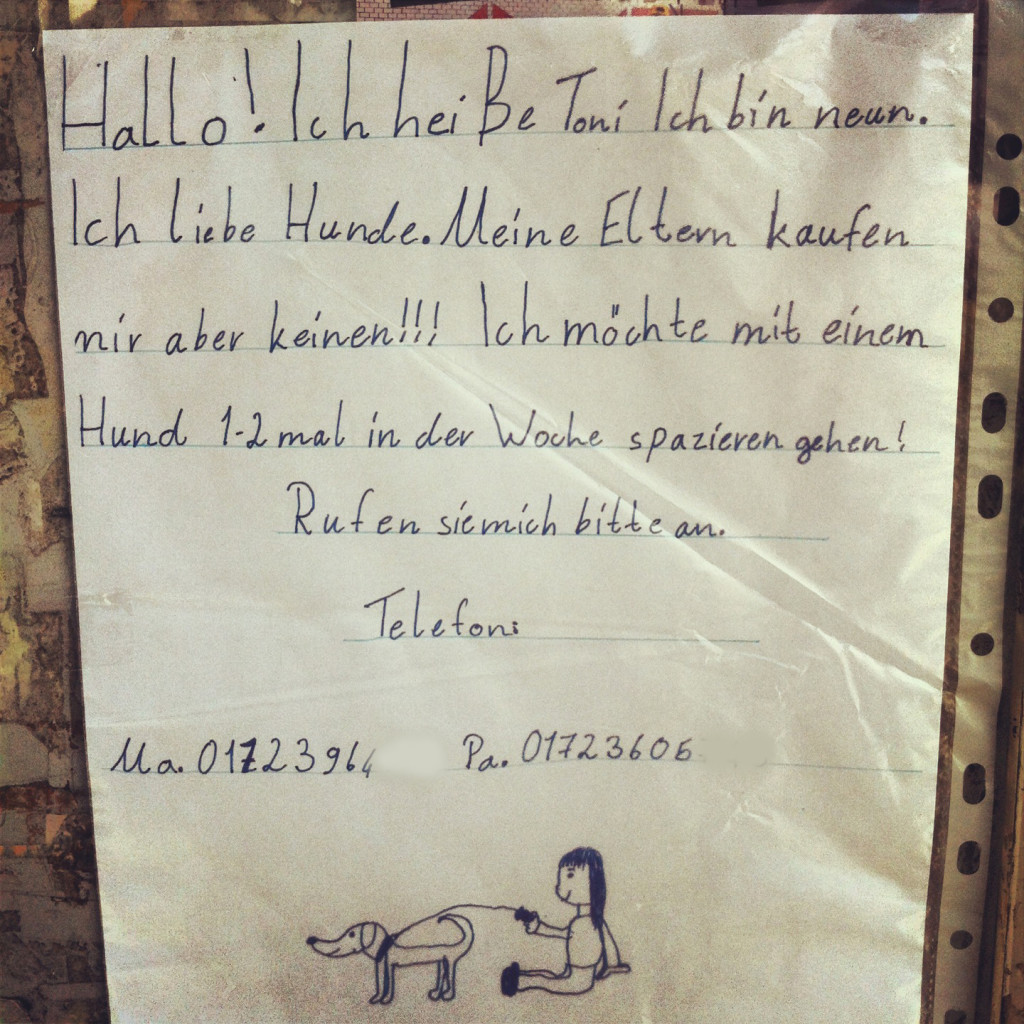 Hallo! Ich heiße Toni Ich bin neun.
Ich liebe Hunde. Meine Eltern kaufen
mir aber keinen!!! Ich möchte mit einem
Hund 1-2 mal in der Woche spazieren gehen!
Rufen sie mich bitte an.
Telefon:
Ma. 01723964 Pa. 01723606